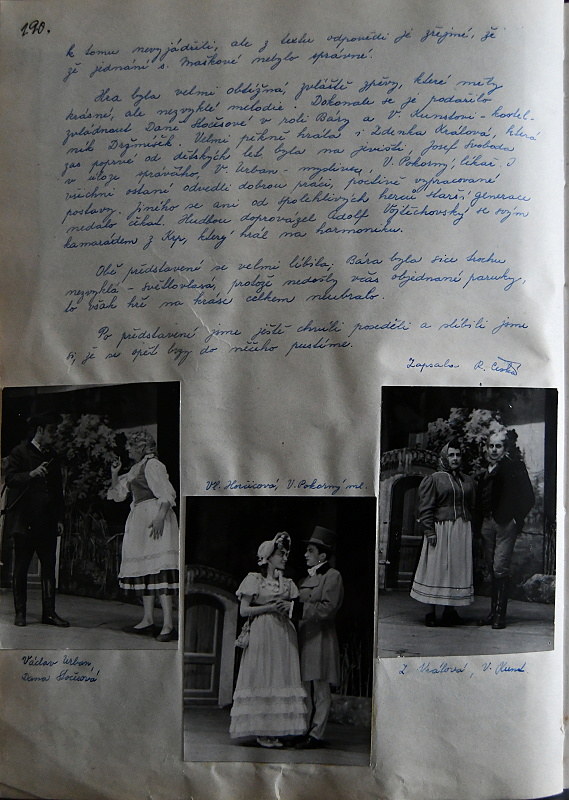 190.
k tomu nevyjádřili, ale z textu odpovědi je zřejmé, že
že jednání s. Maškové nebylo správné.
Hra byla velmi obtížná, zvláště zpěvy, které měly
krásné, ale nezvyklé melodie. Dokonale se je podařilo
zvládnout Daně Hočesové v roli Báry a V. Kunstovi - kostel-
ník Držmíšek. Velmi pěkně hrála i Zdenka Králová, která
zas poprvé od dětských let byla na jevišti, Josef Svoboda
v úloze správčího, V. Urban - myslivec, V. Pokorný, lékař. I
všichni ostatní odvedli dobrou práci, poctivě vypracované
postavy. Jiného se ani od spolehlivých herců starší generace
nedalo čekat. Hudbou doprovázel Adolf Vojtěchovský se svým
kamarádem z Kep, který hrál na harmoniku.
Obě představené se velmi líbila; Bára byla sice trochu
nezvyklá - světlovlasá, protože nedošly včas objednané paruky,
to však hře na kráse celkem neubralo.
Po představení jsme ještě chvíli poseděli a slíbili jsme
si, že se opět brzy do něčeho pustíme.
Zapsala R.
Vl. V. Pokorný ml.
Václav Urban,
Dana
Z. Králová, V. Kunst